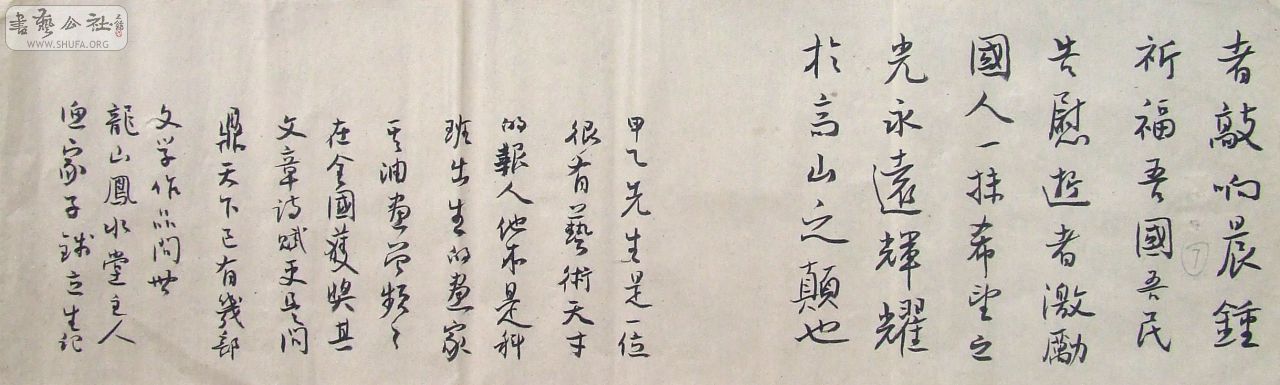 者敲响晨鍾
祈福吾國吾民
告慰逝者激勵
國人一抹希望之
光永遠輝耀
於高山之顛也
甲乙先生是一位
很有藝術天才
的報人他本是科
班出生的畫家
其油畫曾頻々
在全國獲奬其
文章詩賦更是問
鼎天下已有幾部
文学作品問世
龍山鳳水堂主人
家子錢立生記
書藝公社
WWW.SHUFA.ORG
7